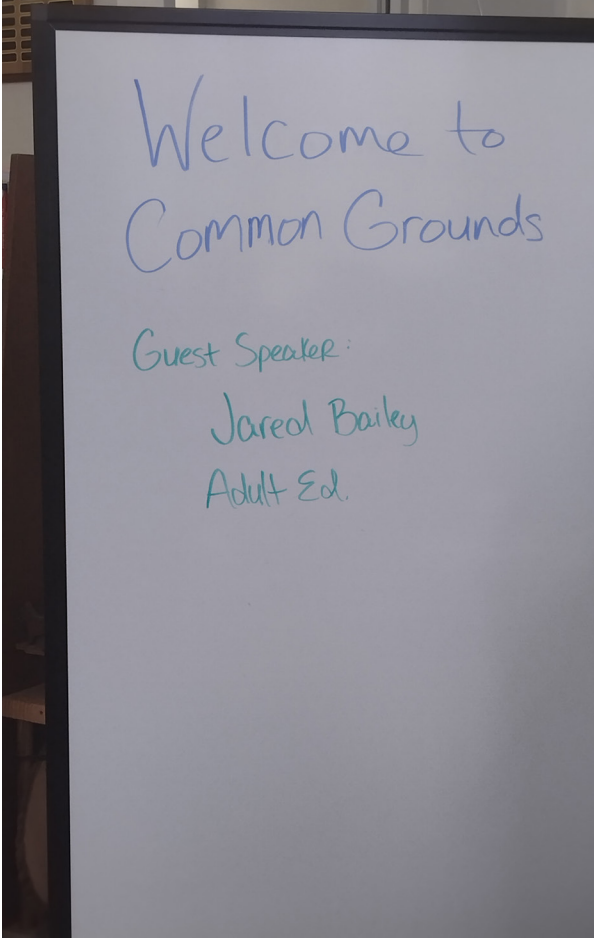 Welcome to
Common Grounds
Guest Speaker:
Jared Bailey
Adult Ed.